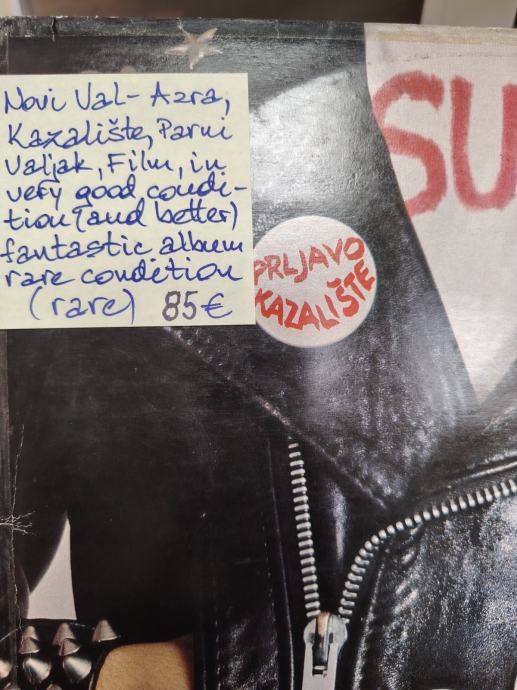 Novi Val- Azra,
Kazalište, Parni
Valjak, Film, in
very good condi-
tion (and better)
fantastic album
rare condition
(rare) 85€
SU
PRLJAVO
KAZALIŠTE